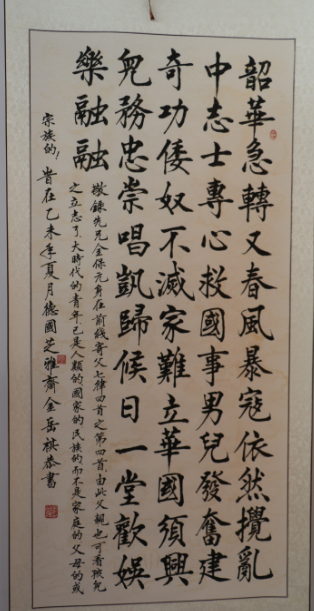 韶華急轉又春風暴寇依然攪亂
中志士專心救國事男兒發奮建
奇功倭奴不滅家難立華國須興
兒務忠崇唱凱歸候日一堂歡娛
樂融融
錄先兄金保元身在前线寄父七律四首之第四首由此父親也可看孩兒
之立志了大時代的青年已是人類的國家的民族的而不是家庭的父母的或
宗族的！旹在乙未年夏月德國芝雅齋金岳祺恭書